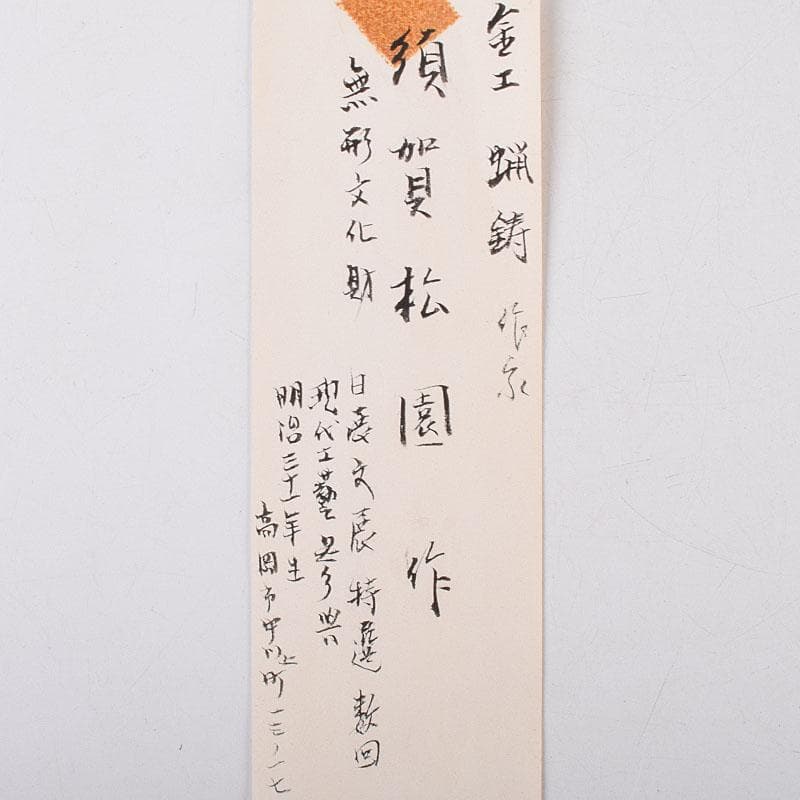 金工 蝋鋳 作家
須賀松園 作
無形文化財
日展文展 特選 数回
現代工藝 参与
明治三十一年生
高岡市中川上町 一三ノ一七